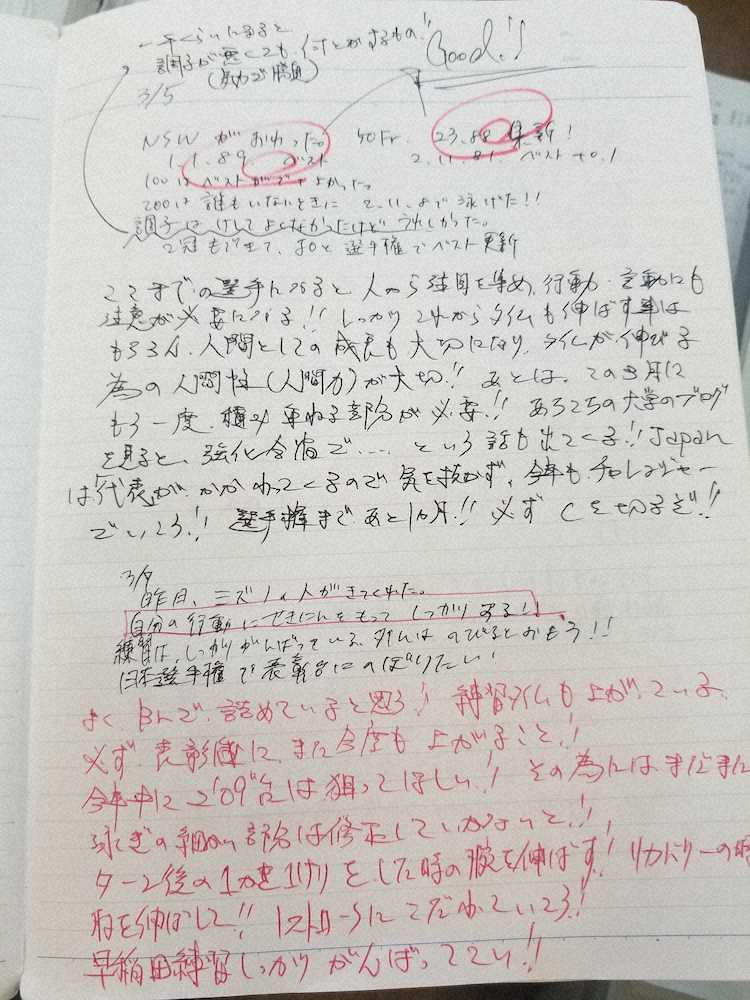 一年くらいになると
調子が悪くても何とかするもの!!
(気力で勝負)
Good!!
3/5
NSWがおわった。 50Fr. 23.88 更新!
1.1.89 ベスト 2.11.81. ベスト+0.1
100はベストがでてよかった。
200は誰もいないときに 2.11.まで泳げた!!
調子はけしてよくなかったけどうれしかった。
2冠もできて、JOと選手権でベスト更新
ここまでの選手になると人から注目を集め、行動・言動にも
注意が必要になる!! しっかりこれからタイムも伸ばす事は
もちろん、人間としての成長も大切になり、タイムが伸びる
為の人間性(人間力)が大切!! あとは、この3月に
もう一度、積み重ねる部分が必要!! あちこちの大学のブログ
を見ると、強化合宿で.... という話も出てくる!! Japan
は代表がかかわってくるので気を抜かず、今年もチャレンジャー
でいこう!! 選手権まであと1ヵ月!! 必ず Cを切るぞ!!
3/7
昨日、ミズノの人がきてくれた。
自分の行動にせきにんをもってしっかりする!!
練習は、しっかりがんばっている、タイムはのびるとおもう!!
日本選手権で表彰台にのぼりたい!
よく 詰めていると思う! 練習タイムも上がっている、
必ず、表彰台に、また今度も上がること!!
今年中に 2'09"台は狙ってほしい!! その為にはまだまだ
泳ぎの細かい部分は修正していかないと!!
ターン後の1かき1けりをした時の腕を伸ばす! リカバリーの時
肘を伸ばして!! 1ストロークにこだわっていこう!!
早稲田練習しっかりがんばってこい!!